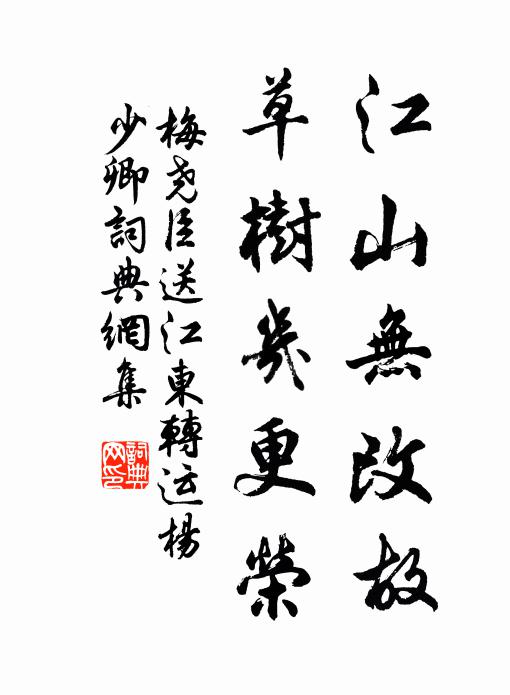 江山無改故
草樹幾更榮
梅尧臣送江東轉运楊
少卿詞典網集
詞典
网印